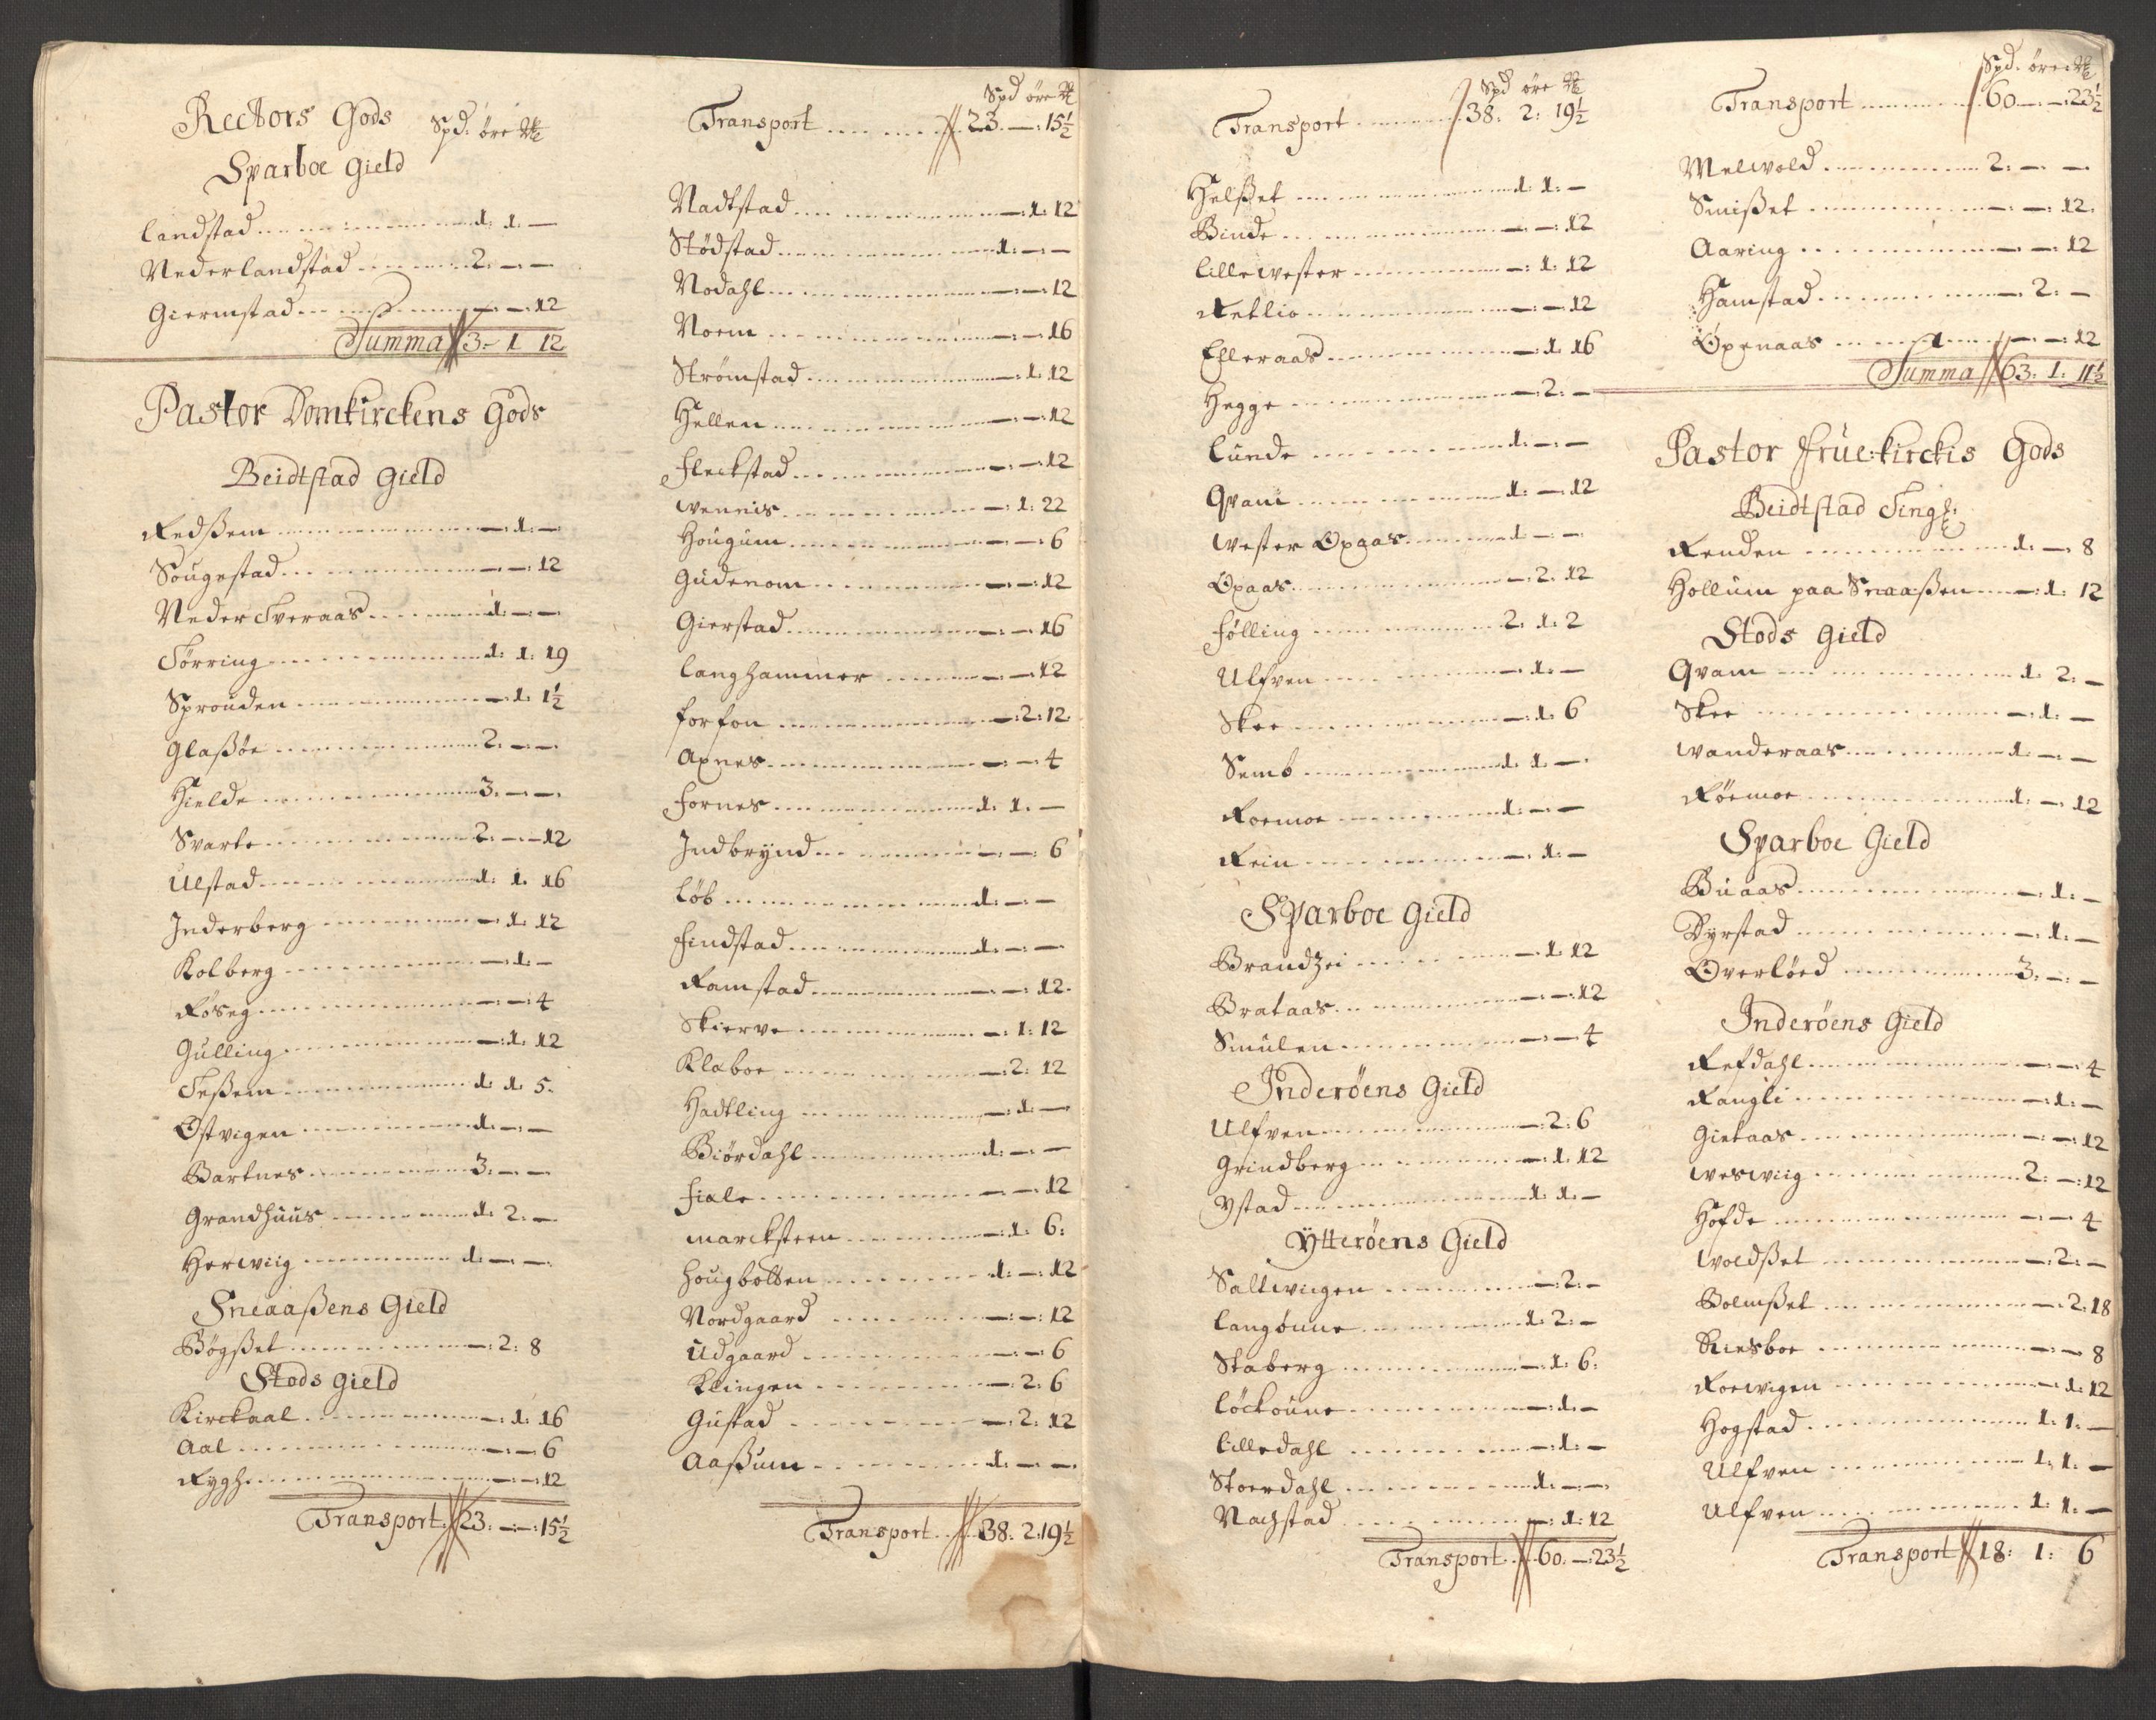 Rectors Gods Spd: öre ℳ
Sparboe Gield
Landstad 1: 1: —
Nederlandstad 2: — —
Giermstad — — 12
Summa 3: 1 12
Pastor Domkirckens Gods
Beidtstad Gield
Redßem —: 1: —
Sougestad — —: 12
Neder Tveraas 1: — —
Törring 1: 1: 19
Sprouden —: 1: 1½
Glaßöe 2: — —
Hielde 3: — —
Svarte 2: — 12
Ulstad 1: 1. 16
Inderberg —: 1: 12
Kolberg —: 1: —
Röseg — —: 4
Gulling —: 1: 12
Teßem 1: 1: 5.
Østvigen 1: —: —
Bartnes 3: — —
Grandhuus 1: 2: —
Herwiig 1: — —
Sneaaßens Gield
Bögßet —: 2: 8
Stods Gield
Kirckaal —: 1: 16
Aal — —: 6
Rygh — —: 12
Transport 23: —: 15½
Spd öre ℳ
Transport 23. —: 15½
Nadtstad —: 1: 12
Stödstad 1: — —
Nodahl — —: 12
Noem — — 16
Strömstad — 1: 12
Hellen — —: 12
Fleckstad — —: 12
wennis —: 1: 22
Hougum — —: 6
Gudenom — —: 12
Gierstad —: —: 16
Langhammer — —: 12
Forfon —: 2: 12
Axnes — —: 4
Fornes 1: 1. —
Indbrÿnd — —: 6
Löb 1: — —
Findstad 1: — —
Ramstad — —: 12.
Skierve —: 1: 12
Klæboe —: 2: 12
Hadtling —: 1: —
Biördahl 1: — —
Fiale — —: 12
marcksteen —: 1: 6:
Hougbotten 1: —: 12
Nordgaard —: —: 12
Udgaard — —: 6
Klingen —: 2: 6
Gustad —: 2: 12
Aaßum 1: — —
Transport 38: 2: 19½
Spd öre ℳ
Transport 38: 2: 19½
Helßet 1: 1: —
Binde — —: 12
Lillewester —: 1: 12
Retlio — —: 12
Elleraas —: 1: 16
Hegge —: 2: —
Lunde 1: —: —
Qvam 1: —: 12
Wester Opaas 1 — —
Opaas —: 2: 12
Fölling 2: 1: 2
Ulfven —: 1: —
Skee —: 1: 6
Semb 1: 1: —
Roemoe 1: — —
Rein —: 1: —
Sparboe Gield
Brandzei —: 1: 12
Brataas — —: 12
Smulen — —: 4
Inderöens Gield
Ulfven —: 2: 6
Grindberg —: 1: 12
Ystad 1: 1: —
Ytteröens Gield
Saltwigen —: 2: —
Langöune 1: 2: —
Staberg —: 1: 6:
Löckoune —: 1: —
Lilledahl —: 1: —
Stoerdahl 1: — —
Nachstad —: 1: 12
Transport 60. —: 23½
Spd. öre: ℳ
Transport 60 —: 23½
Melwold 2: — —
Smißet — —: 12.
Aaring — —: 12
Hamstad —: 2: —
Øxenaas — —: 12
Summa 63: 1: 11½
Pastor Frue-kirckis Gods
Beidtstad Ting:
Renden 1: —: 8
Hollum paa Snaaßen —: 1: 12
Stods Gield
Qvam 1: 2: —
Skee —: 1: —
wanderaas 1: — —
Röemoe 1: — 12
Sparboe Gield
Buaas —: 1: —
Dyrstad —: 1: —
Overlöed 3: — —
Inderöens Gield
Refdahl — —: 4
Rangli —: 1: —
Gietaas — —: 12
weswiig 2: —: 12
Hofde — — 4
woldßet —: 2: —
Bolmßet —: 2: 18
Riesboe — —: 8
Roewigen —: 1: 12
Hogstad 1: 1: —
Ulfven 1: 1: —
Ulfven 1: 1: —
Transport 18: 1: 6